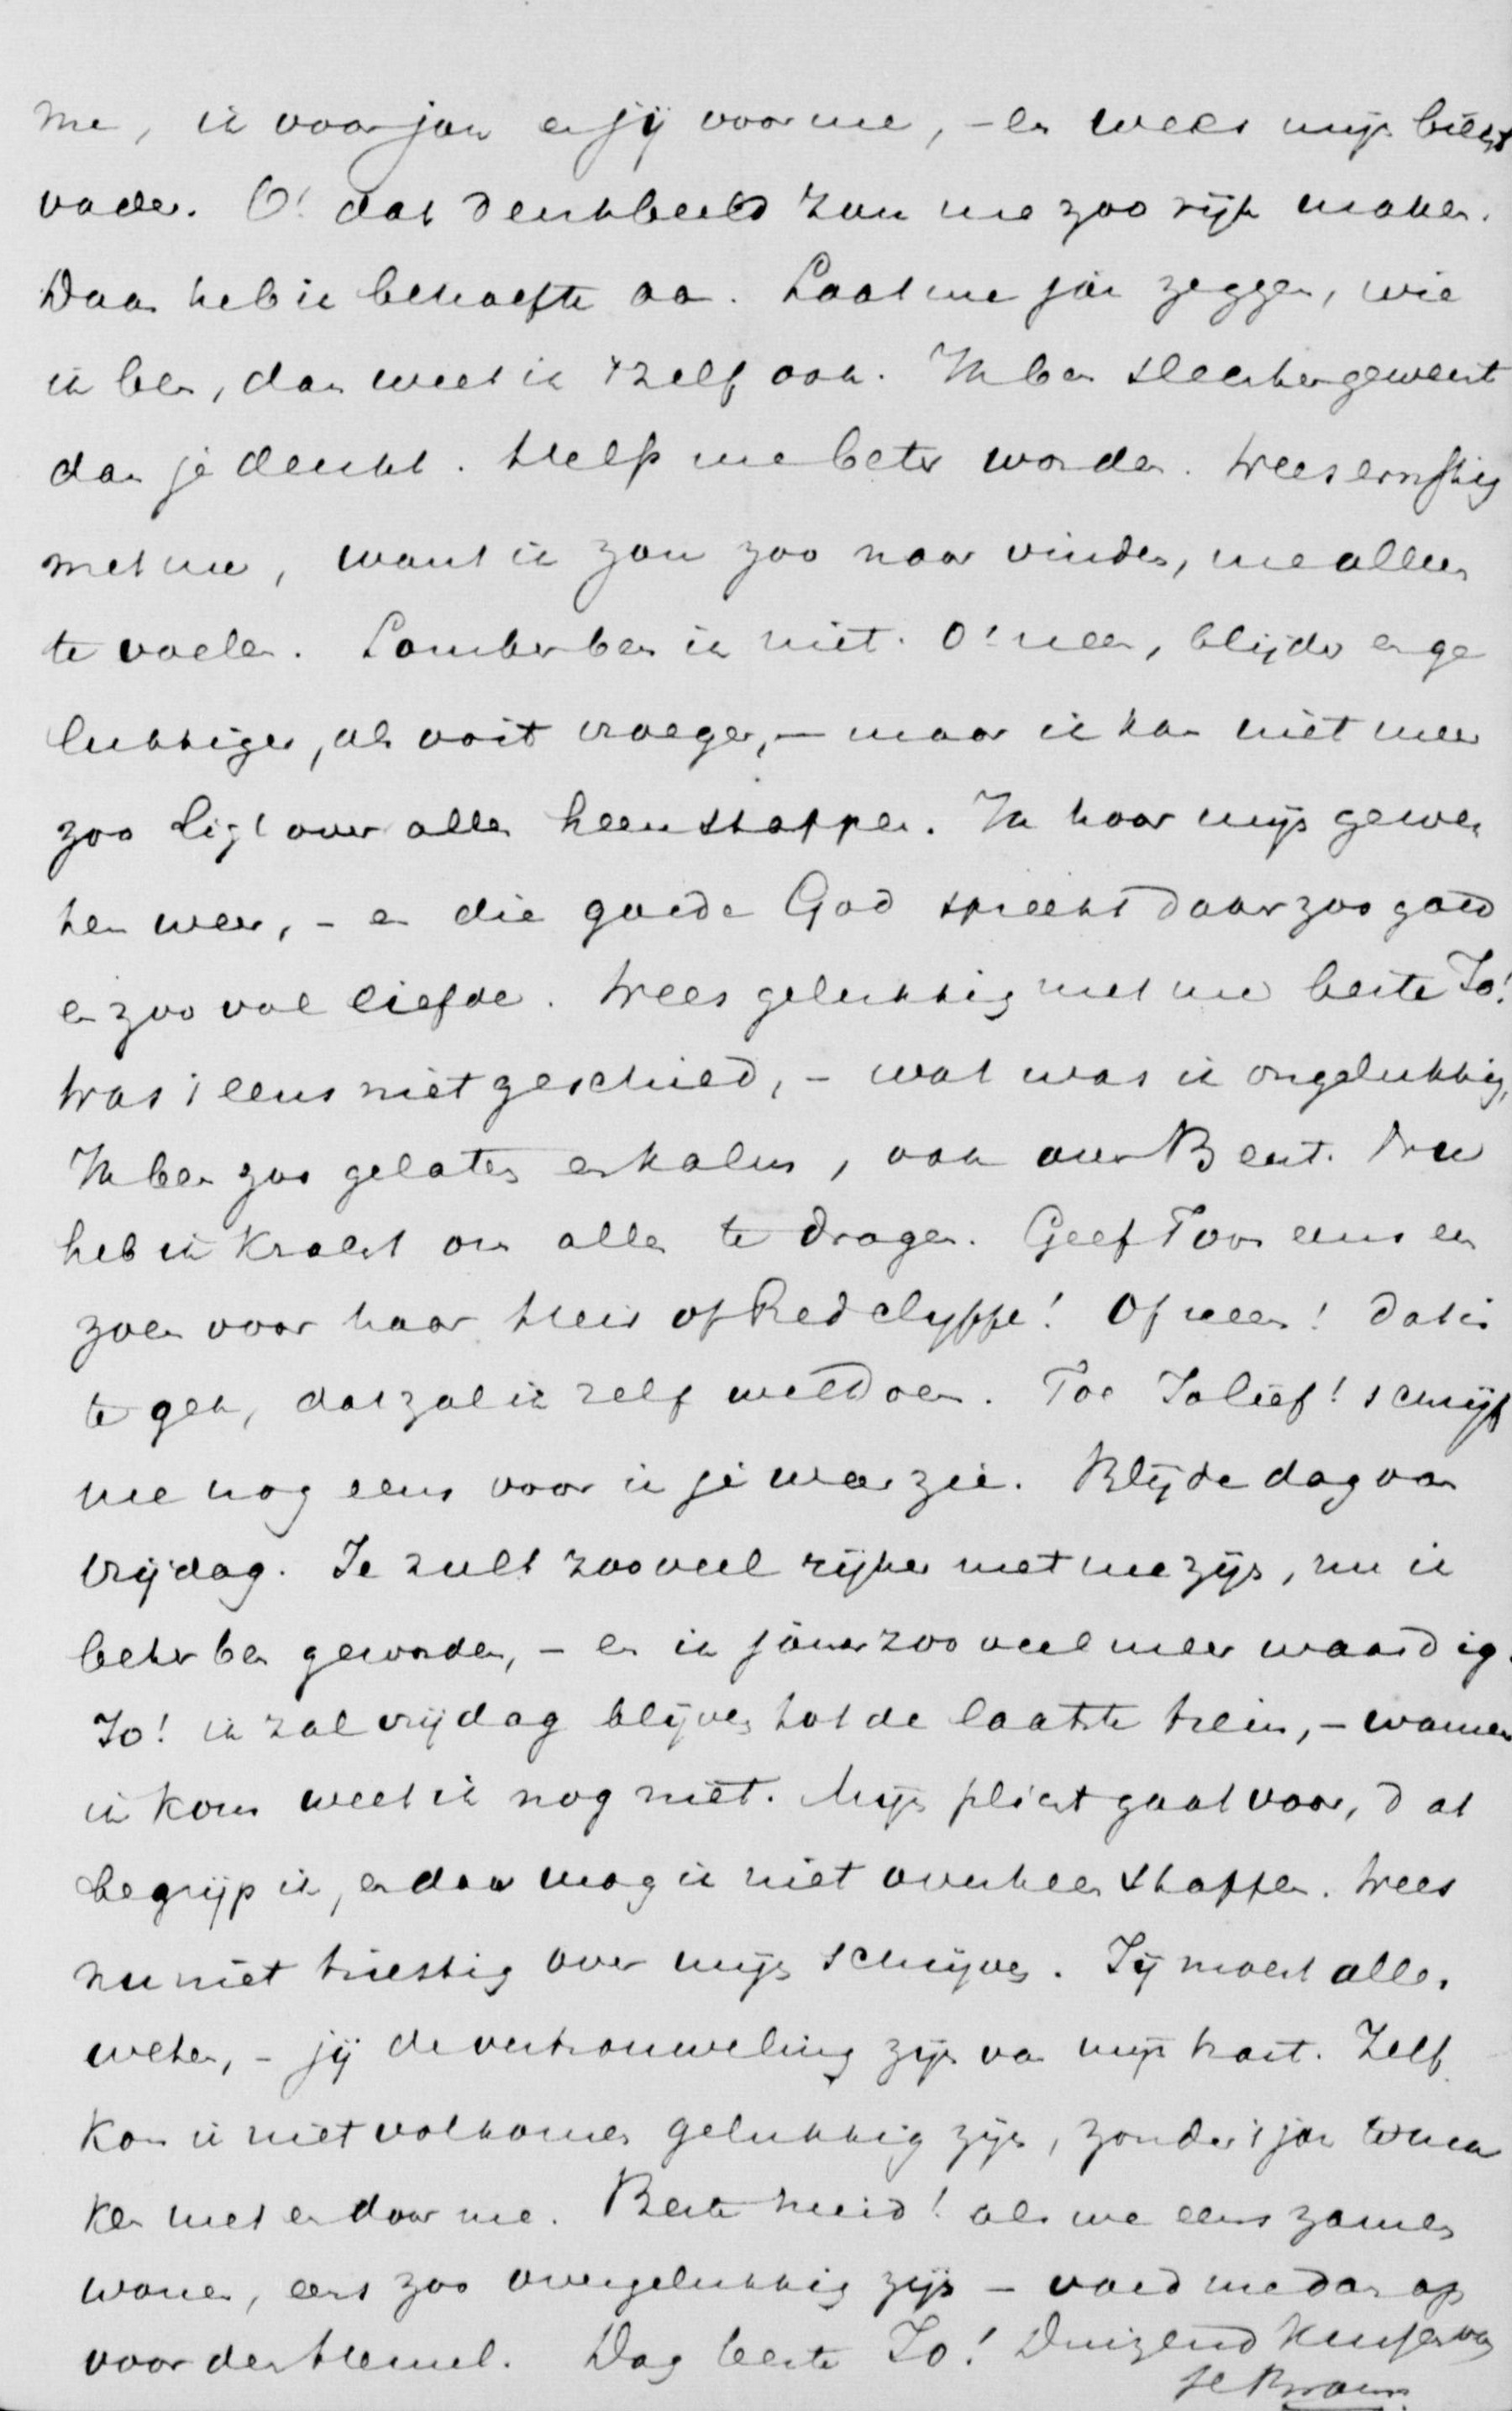 me, ik voor jou en jij voor me, – en wees mijn biecht
vader. O! dat denkbeeld zou me zoo rijk maken.
Daar heb ik behoefte aan. Laat me jou zeggen, wie
ik ben, dan weet ik 't zelf ook. Ik ben slechter geweest
dan je denkt. Help me beter worden. Wees ernstig
met me, want ik zou zoo naar vinden, me alleen
te voelen. Somber ben ik niet. O! neen, blijder en ge
lukkiger, als ooit vroeger, – maar ik kan niet meer
zoo ligt over alles heen stappen. Ik hoor mijn gewe
ten weer, – en die goede God spreekt daar zoo goed
en zoo vol liefde. Wees gelukkig met me beste Jo!
Was 't eens niet geschied, – wat was ik ongelukkig,
Ik ben zoo gelaten en kalm, ook over Bent. Nu
heb ik kracht om alles te dragen. Geef Toos eens een
zoen voor haar Heir of Redclyffe! Of neen! dat is
te gek, dat zal ik zelf wel doen. Toe Jo lief! schrijf
me nog eens voor ik je weer zie. Blijde dag van
Vrijdag. Je zult zooveel rijker met me zijn, nu ik
beter ben geworden, – en ik jouw zoo veel meer waardig.
Jo! ik zal vrijdag blijven tot de laatste trein, – wanneer
ik kom weet ik nog niet. Mijn plicht gaat voor, dat
begrijp ik, en daar mag ik niet overheen stappen. Wees
nu niet triestig over mijn schrijven. Jij moest alles
weten, – jij de vertrouweling zijn van mijn hart. Zelf
kon ik niet volkomen gelukkig zijn, zonder 't jou te ma
ken met en door me. Beste meid! als we eens zamen
wonen, eens zoo overgelukkig zijn – voed me dan op
voor den Hemel. Dag beste Jo! Duizend kussen van